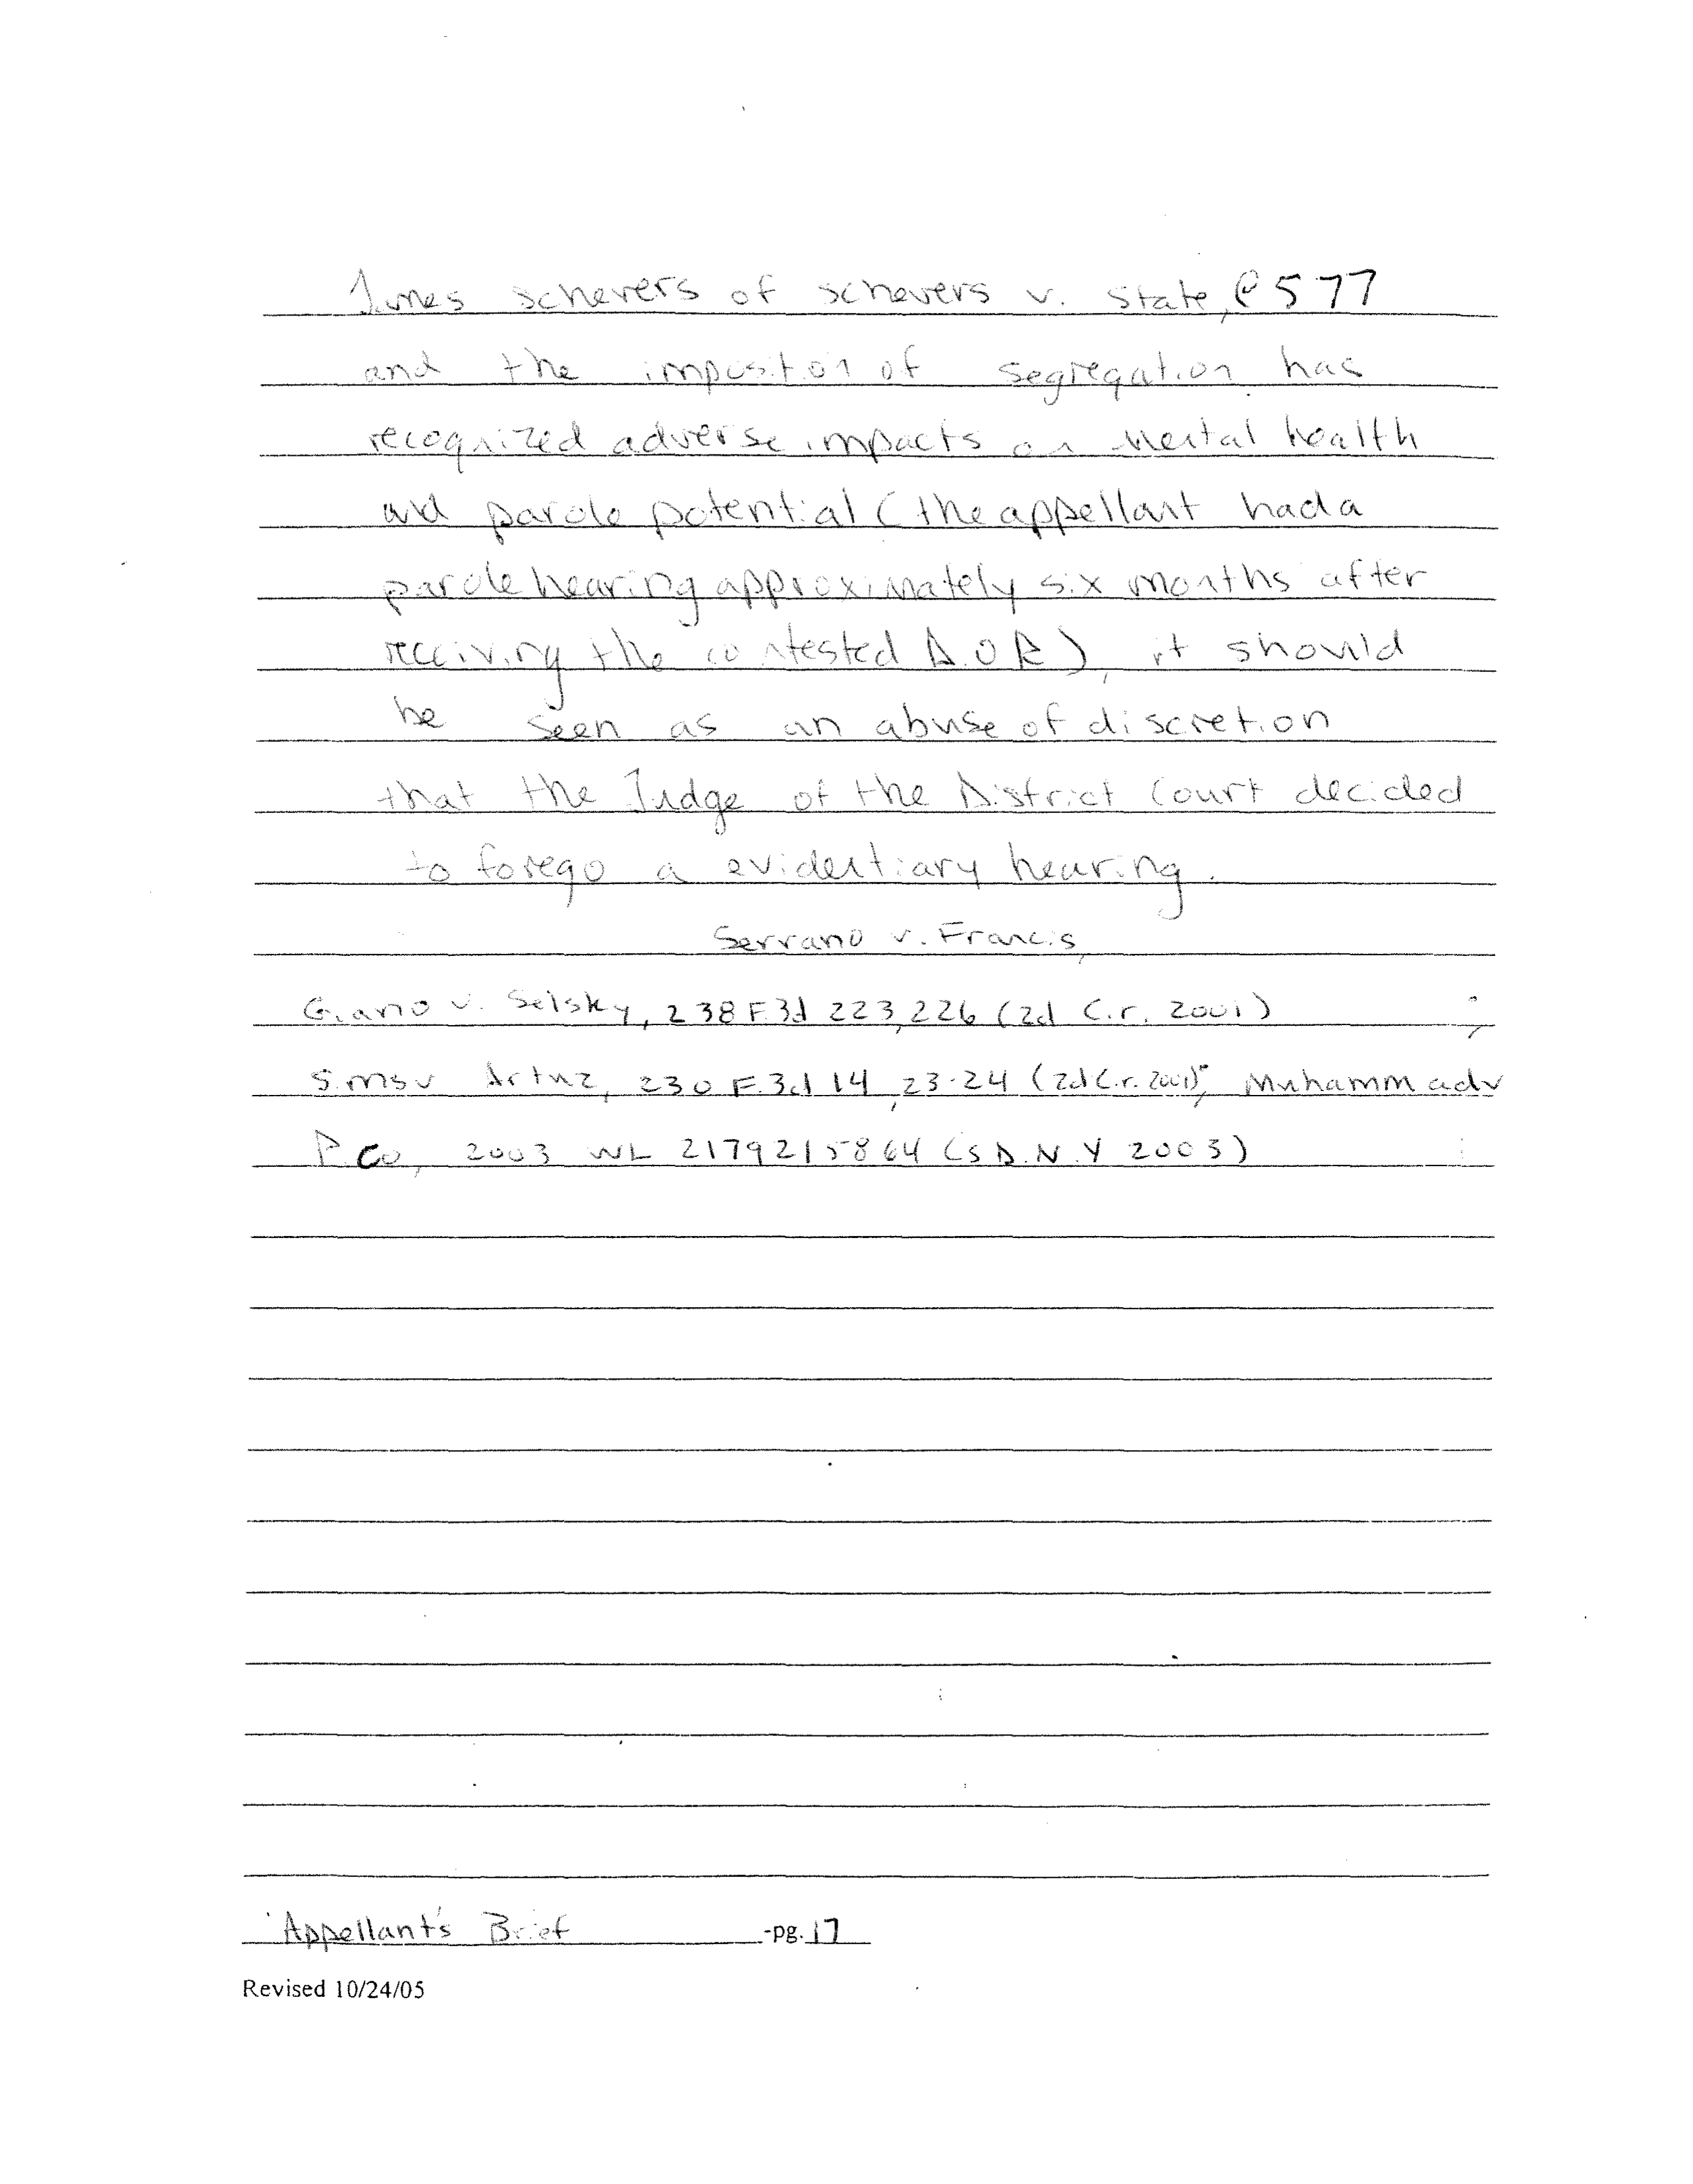 James schevers of schevers v. State, @ 577
and the impositon of segregation has
recognized adverse impacts on Mental health
and parole potential (the appellant had a
parole hearing approximately six months after
receiving the contested D.O.R), it should
be seen as an abuse of discretion
that the Judge of the District Court decided
to forego a evidentiary hearing.
Serrano v. Francis,
Giano v. Selsky, 238 F.3d 223, 226 (2d Cir. 2001) ;
Sims v Artuz, 230 F.3d 14, 23-24 (2d Cir. 2001); Muhammad v
Pico, 2003 WL 2179215864 (S.D.N.Y 2003)
Appellant's Brief -pg. 17
Revised 10/24/05